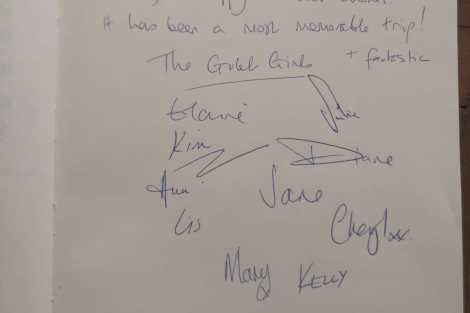 it has been a most memorable trip!
The Gulet Girls + fantastic
Elaine Julie
Kim
Diane
Ann
Jane
Lis
Cheryl xx
Mary KELLY